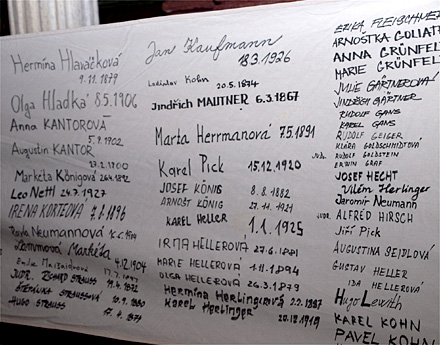 Hermína Hlaváčková
9.11.1879
Olga Hladká 8.5.1906
Anna KANTOROVÁ
5.7.1902
Augustin KANTOR
Markéta Königová 26.4.1892
Leo Nettl 24.7.1927
IRENA KURZOVÁ 7.1.1896
Pavla Neumannová
Dommová Markéta
4.12.1904
JUDR. RICHARD STRAUSS
ŠTĚPÁNKA STRAUSSOVÁ
HUGO STRAUSS
Jan Kaufmann
18.3.1926
Ladislav Kohn 20.5.1874
Jindřich MAUTNER 6.3.1867
Marta Herrmanová 7.5.1891
Karel Pick 15.12.1920
JOSEF KÖNIG 8.8.1882
ARNOŠT KÖNIG 27.11.1921
KAREL HELLER 1.1.1925
IRMA HELLEROVÁ 27.6.1881
MARIE HELLEROVÁ 1.11.1894
OLGA HELLEROVÁ 26.3.1879
Hermína Herlingerová 2.2.1887
Karel Herlinger 20.12.1919
ERIKA FLEISCHNER
ARNOŠTKA GOLIATH
ANNA GRÜNFEL
MARIE GRÜNFEL
JULIE GÄRTNEROVÁ
JINDŘICH GÄRTNER
KAREL GANS
RUDOLF GEIGER
KLÁRA GOLDSCHMIDTOVÁ
RUDOLF GOLDSTEIN
ERWIN GRAF
JOSEF HECHT
Vilém Herlinger
Jaromír Neumann
JUDr. ALFRÉD HIRSCH
Jiří Pick
AUGUSTINA SEJDLOVÁ
GUSTAV HELLER
IDA HELLEROVÁ
Hugo Lewith
KAREL KOHN
PAVEL KOHN